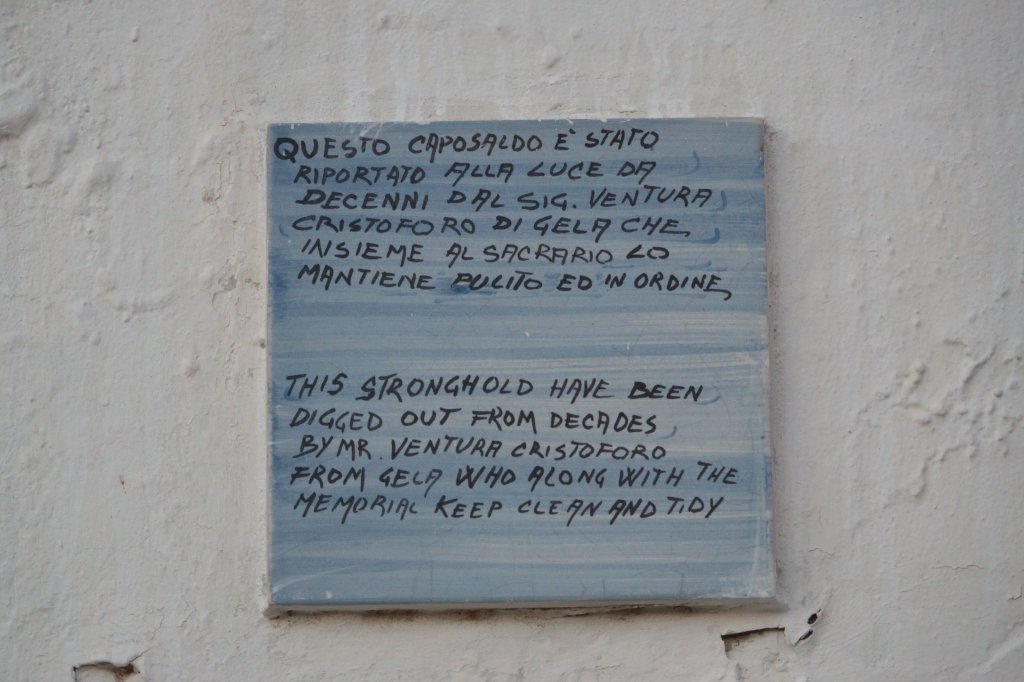 QUESTO CAPOSALDO È STATO
RIPORTATO ALLA LUCE DA
DECENNI DAL SIG. VENTURA
CRISTOFORO DI GELA CHE
INSIEME AL SACRARIO LO
MANTIENE PULITO ED IN ORDINE
THIS STRONGHOLD HAVE BEEN
DIGGED OUT FROM DECADES
BY MR. VENTURA CRISTOFORO
FROM GELA WHO ALONG WITH THE
MEMORIAL KEEP CLEAN AND TIDY